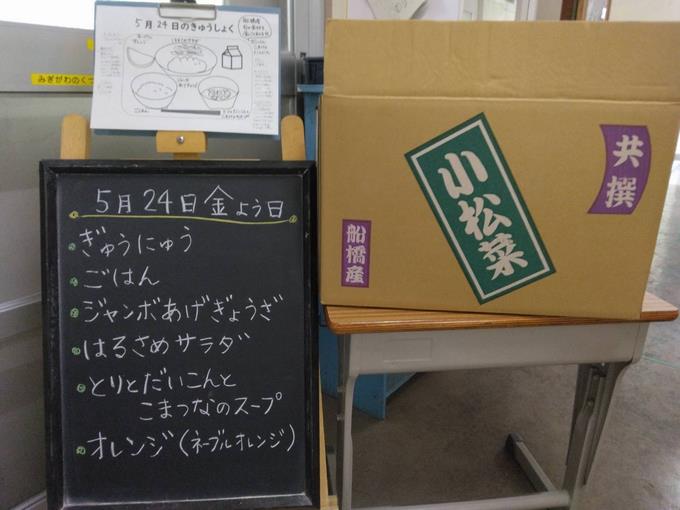 5月24日のきゅうしょく
ごはん
みぎがわのくつ
5月24日金よう日
ぎゅうにゅう
ごはん
ジャンボあげぎょうざ
はるさめサラダ
とりとだいこんと
こまつなのスープ
オレンジ(ネーブルオレンジ)
共撰
小松菜
船橋産